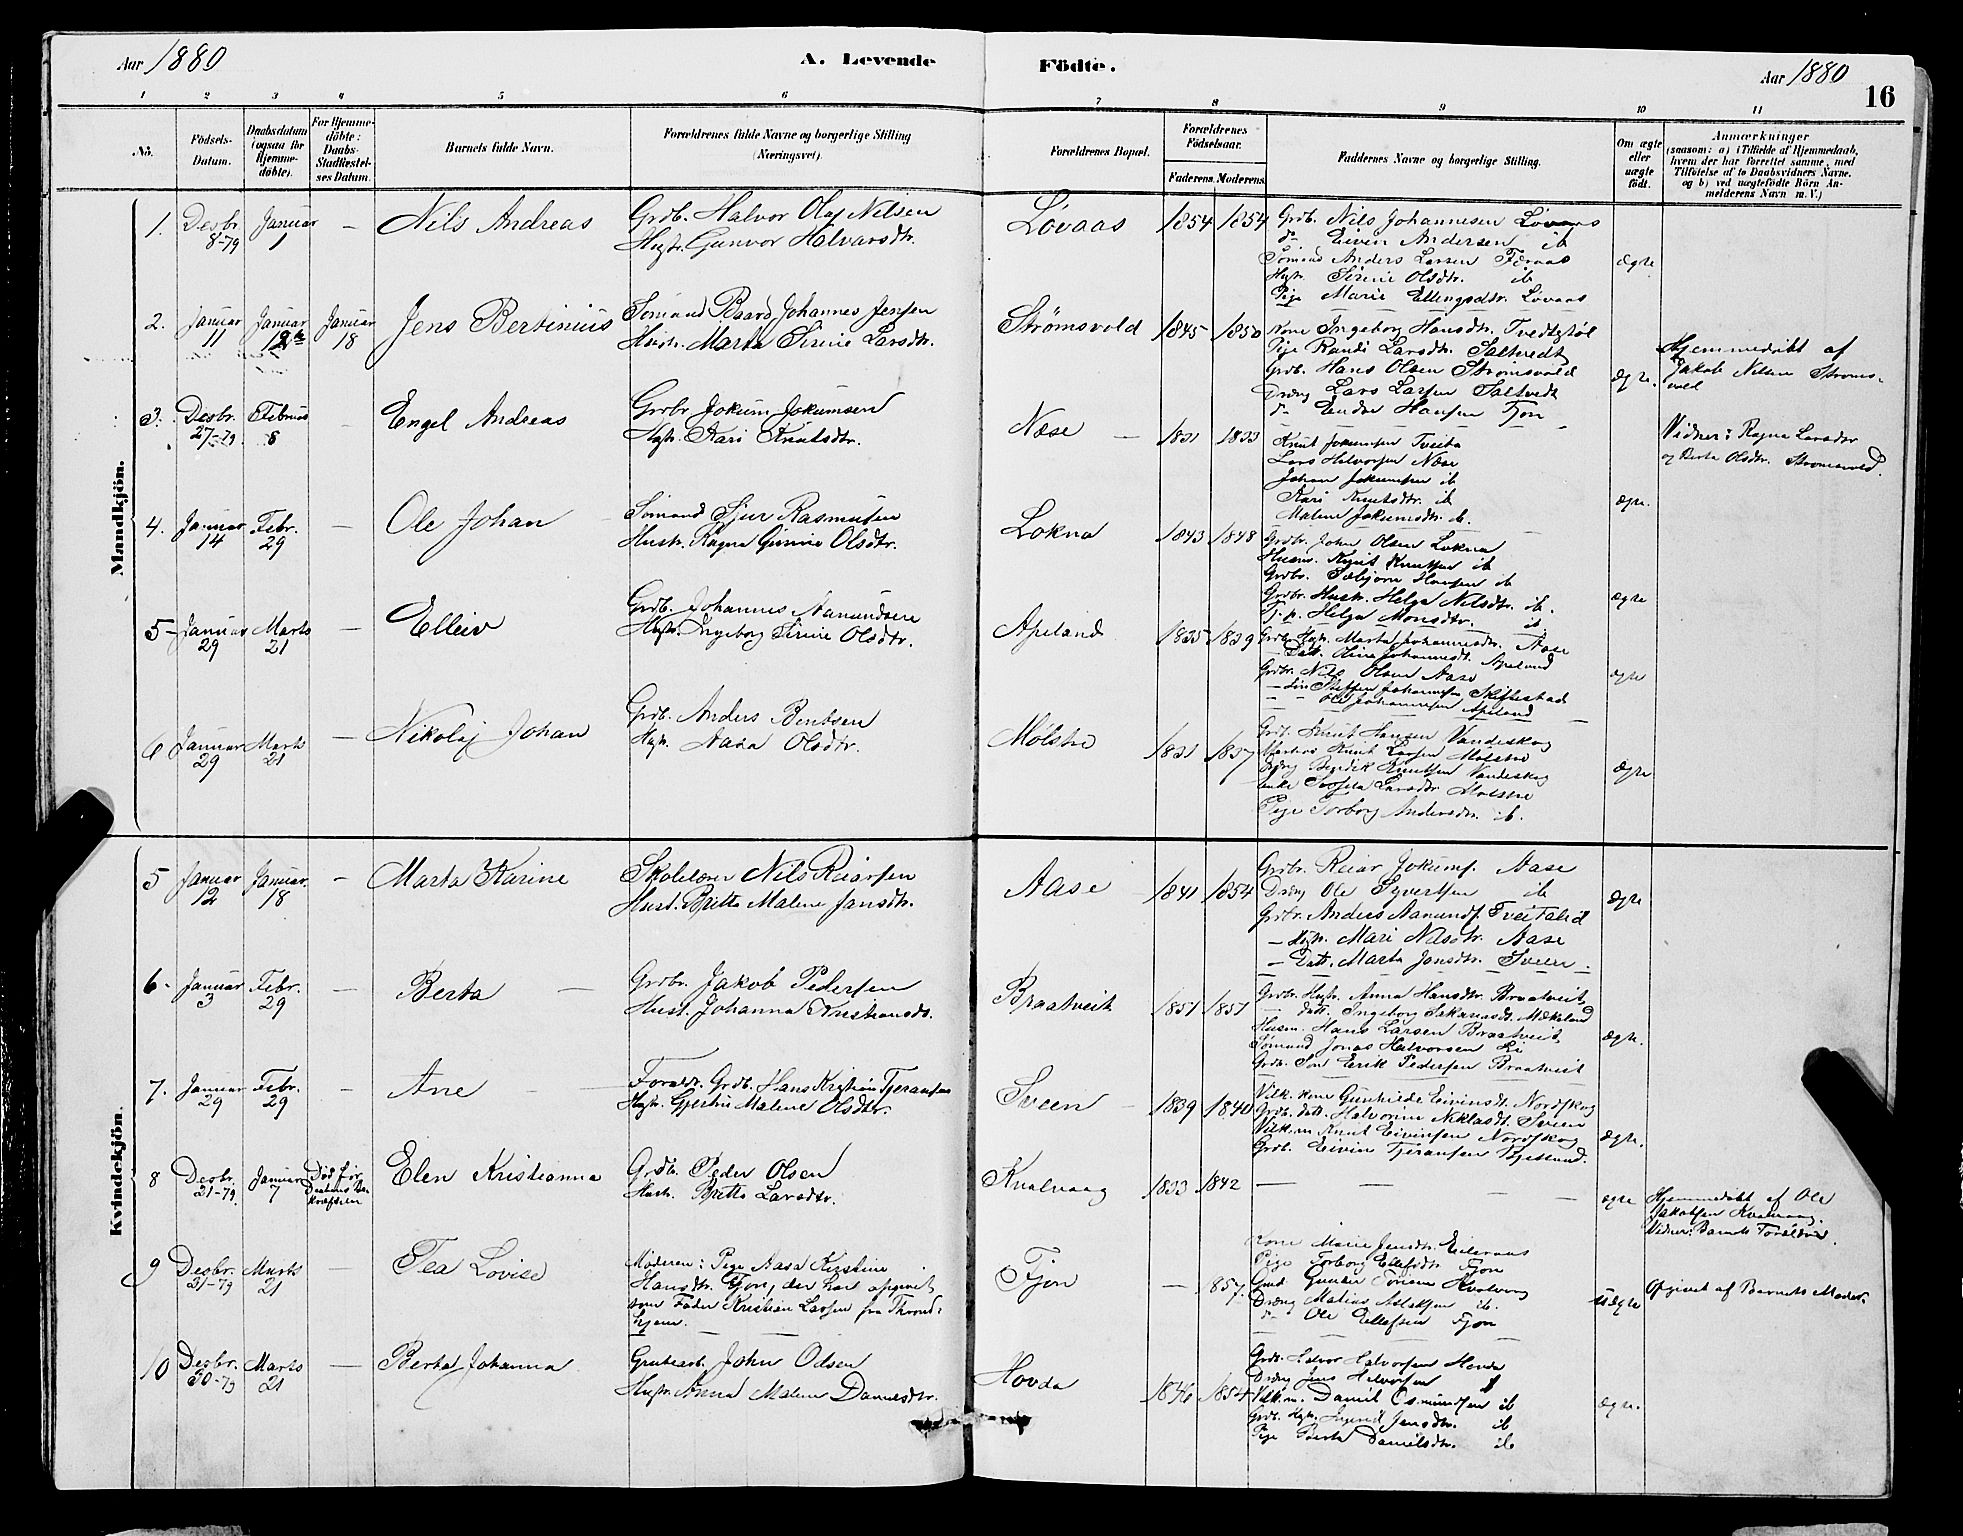 Aar 1880
A. Levende Födte.
Aar 1880
16
1 2 3 4 5 6 7 8 9 10 11
No.
Födsels-Datum.
Daabsdatum (ogsaa for Hjemme-döbte).
For Hjemme-döbte: Daabs-Stadfæstel-ses Datum.
Barnets fulde Navn.
Forældrenes fulde Navne og borgerlige Stilling (Næringsvei).
Forældrenes Bopæl.
Forældrenes Födselsaar.
Faderens. Moderens.
Faddernes Navne og borgerlige Stilling.
Om ægte eller uægte födt.
Anmærkninger
(saasom: a) i Tilfælde af Hjemmedaab, hvem der har forrettet samme, med Tilföielse af to Daabsvidners Navne, og b) ved uægtefödte Börn An-melderens Navn m. V.)
Mandkjön.
1. Desbr. 8-79 Januar 1 — Nils Andreas
Grdb. Halvor Olaj Nilsen
Hustr. Gunvor Halvarsdtr.
Lovaas 1854 1854
Grb. Nils Johannesen Lovaas
do Eivin Andersen ib
Sömand Anders Larsen Færaas
Hustr. Sirine Olsdtr. ib
Pige Marie Ellingsdtr. Lovaas
ægte
2. Januar 11 Januar Januar 18 Jens Bertinius
Sömand Baard Johannes Jensen
Hustr. Marta Sirine Larsdtr.
Strømsvold 1845 1850
Kone Ingeborg Hansdtr. Tvedtstøl
Pige Randi Larsdtr. Saltvedt
Grdb. Hans Olsen Strømsvold
Dreng Lars Larsen Saltvedt
do Endre Hansen Fjon
ægte.
Hjemmedøbt af
Jakob Nilsen Strøms-
vold
Vidner: Ragna Larsdtr
og Berta Olsdtr. Strømsvold.
3. Desbr. 27-79 Februar 8 — Engel Andreas
Grdbr Jokum Jokumsen
Hustr. Kari Knutsdtr.
Næse 1831 1833
Knut Jokumsen Tveita
Lars Halvorsen Næse
Johan Jokumsen ib
Kari Knutsdtr. ib
Malene Jokumsdtr. ib.
ægte.
4. Januar 14 Febr. 29 — Ole Johan
Sömand Sjur Rasmusen
Hustr. Ragna Gurine Olsdtr.
Lokna 1843 1848
Grdbr. John Olsen Lokna
Husm. Knut Knutsen ib
Grdbr. Sæbjørn Hansen ib
Grdbr. Hustr. Helga Nilsdtr. ib.
T. p. Helga Monsdtr. ib
ægte
5 Januar 29 Marts 21 — Elleiv
Grdb. Johannes Aamundsen
Hustr. Ingeborg Sirine Olsdtr.
Apeland 1835 1839
Grdbr. Hustr. Marta Johannesdtr. Aase
— Datt. Olina Johannesdt. Apeland
Grdbr. Nils Olsen Aase
— Sön Steffen Johannesen Skiftestad
— Ole Johannesen Apeland
ægte
6 Januar 29 Marts 21 — Nikolaj Johan
Grdb. Anders Bentsen
Hustr. Aasa Olsdtr.
Mølstre 1831 1837
Grdb. Knut Hansen Vandeskog
Knut Larsen Mølstre
Dreng Bendik Knutsen Vandeskog
Enke Larsdtr Mølstre
Pige Torborg Andersdtr. ib.
ægte
Kvindekjön.
5 Januar 12 Januar 18 — Marta Karine
Skolelærer Nils Reiarsen
Hust. Britta Malene Jansdtr.
Aase 1841 1854
Grdbr. Reiar Jokums. Aase
Dreng Ole Syvertsen ib
Grdbr. Anders Aamunds. Tveitalid
— Hustr. Mari Nilsdtr. Aase
— Datt. Marta Jansdtr. Sveen.
ægte
6 Januar 3 Febr. 29 — Berta —
Grdbr. Jakob Pedersen
Hust. Johanna Kristiansdt.
Braatveit 1851 1851
Grdbr. Hustr. Anna Hansdtr. Braatveit
— Datt. Ingeborg Mækeland
Husm. Hans Larsen Braatveit
Sömand Jonas Halvorsen Li
Grdb. Sön Erik Pedersen Braatveit
ægte.
7. Januar 29 Febr. 29 — Ane —
Foræld. Grdb. Hans Kristian Tjeransen
Hustr. Gjertine Malene Olsdtr.
Sveen 1839 1840
Vilk. kone Gunhilde Eivinsdt. Nordskog
Grdb. datt. Halvorine Niklasdt. Sveen
Vilk.m Knut Eivinsen Nordskog
Grdb. Eivin Tjeransen
ægte.
8 Desbr. 21-79 Januar 7 Död för Daabens Be-kræftelse Elen Kristianna
Grdb. Peder Olsen
Hustr. Britta Larsdtr.
Kvalvaag 1833 1842 — — —
ægte
Hjemmedøbt af Ole
Jakobsen Kvalvaag.
Vidner: Barnets Forældre.
9 Desbr. 21-79 Marts 21 — Tea Lovise
Moderen: Pige Aasa Kirstine
Hansdtr. Fjon, der har opgivet
som Fader Kristian Larsen fra Thrond-
hjem.
Fjon — 1857.
Kone Marie Jensdtr. Eileraas
Pige Torborg Ellefsdtr Fjon
Gmd. Gunder Kvalvaag
Dreng Matias Aslaksen ib.
do Ole Ellefsen Fjon
uægte
Opgivet af Barnets Moder.
10 Desbr. 30-79 Marts 21 — Berta Johanna
Grubearb. John Odsen
Hustr. Anna Malene Danielsdtr.
Hovda 1846 1854
Grdb. Halvor Halvorsen Hovda
Dreng Jens Halvorsen
Vilk.m. Daniel Osmundsen ib
Grdb. Hustr. Sigrid Jensdtr. ib
Pige Berta Danielsdtr. ib
ægte.